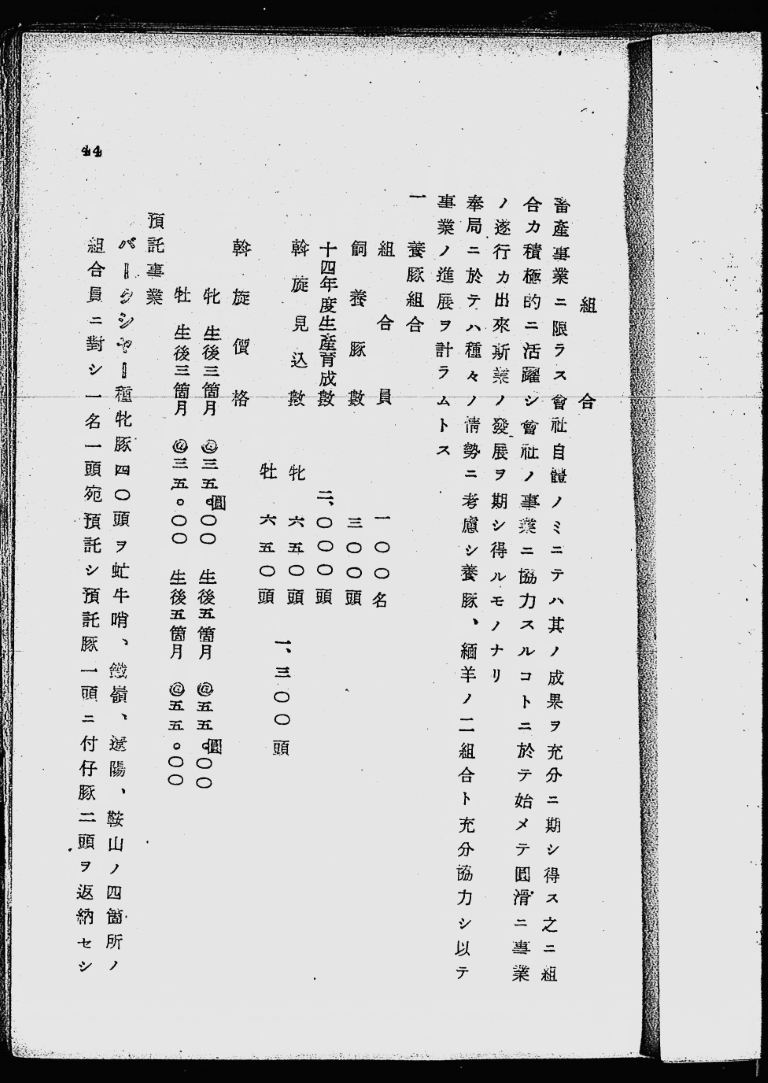 組合
畜產事業ニ限ラス會社自體ノミニテハ其ノ成果ヲ充分ニ期シ得ス之ニ組
合カ積極的ニ活躍シ會社ノ事業ニ協力スルコトニ於テ始メテ圓滑ニ事業
ノ遂行カ出來斯業ノ發展ヲ期シ得ルモノナリ
奉局ニ於テハ種々ノ情勢ニ考慮シ養豚、緬羊ノ二組合ト充分協力シ以テ
事業ノ進展ヲ計ラムトス
一 養豚組合
組合員 一〇〇名
飼養豚數 三〇〇頭
十四年度生產育成數 二、〇〇〇頭
斡旋見込數 牝 六五〇頭
牡 六五〇頭
一、三〇〇頭
斡旋價格
牝 生後三箇月 @三五。〇〇圓 生後五箇月 @五五。〇〇圓
牡 生後三箇月 @三五。〇〇 生後五箇月 @五五。〇〇
預託事業
バークシャー種牝豚四〇頭ヲ虻牛哨、鐵嶺、遼陽、鞍山ノ四箇所ノ
組合員ニ對シ一名一頭宛預託シ預託豚一頭ニ付仔豚二頭ヲ返納セシ
44